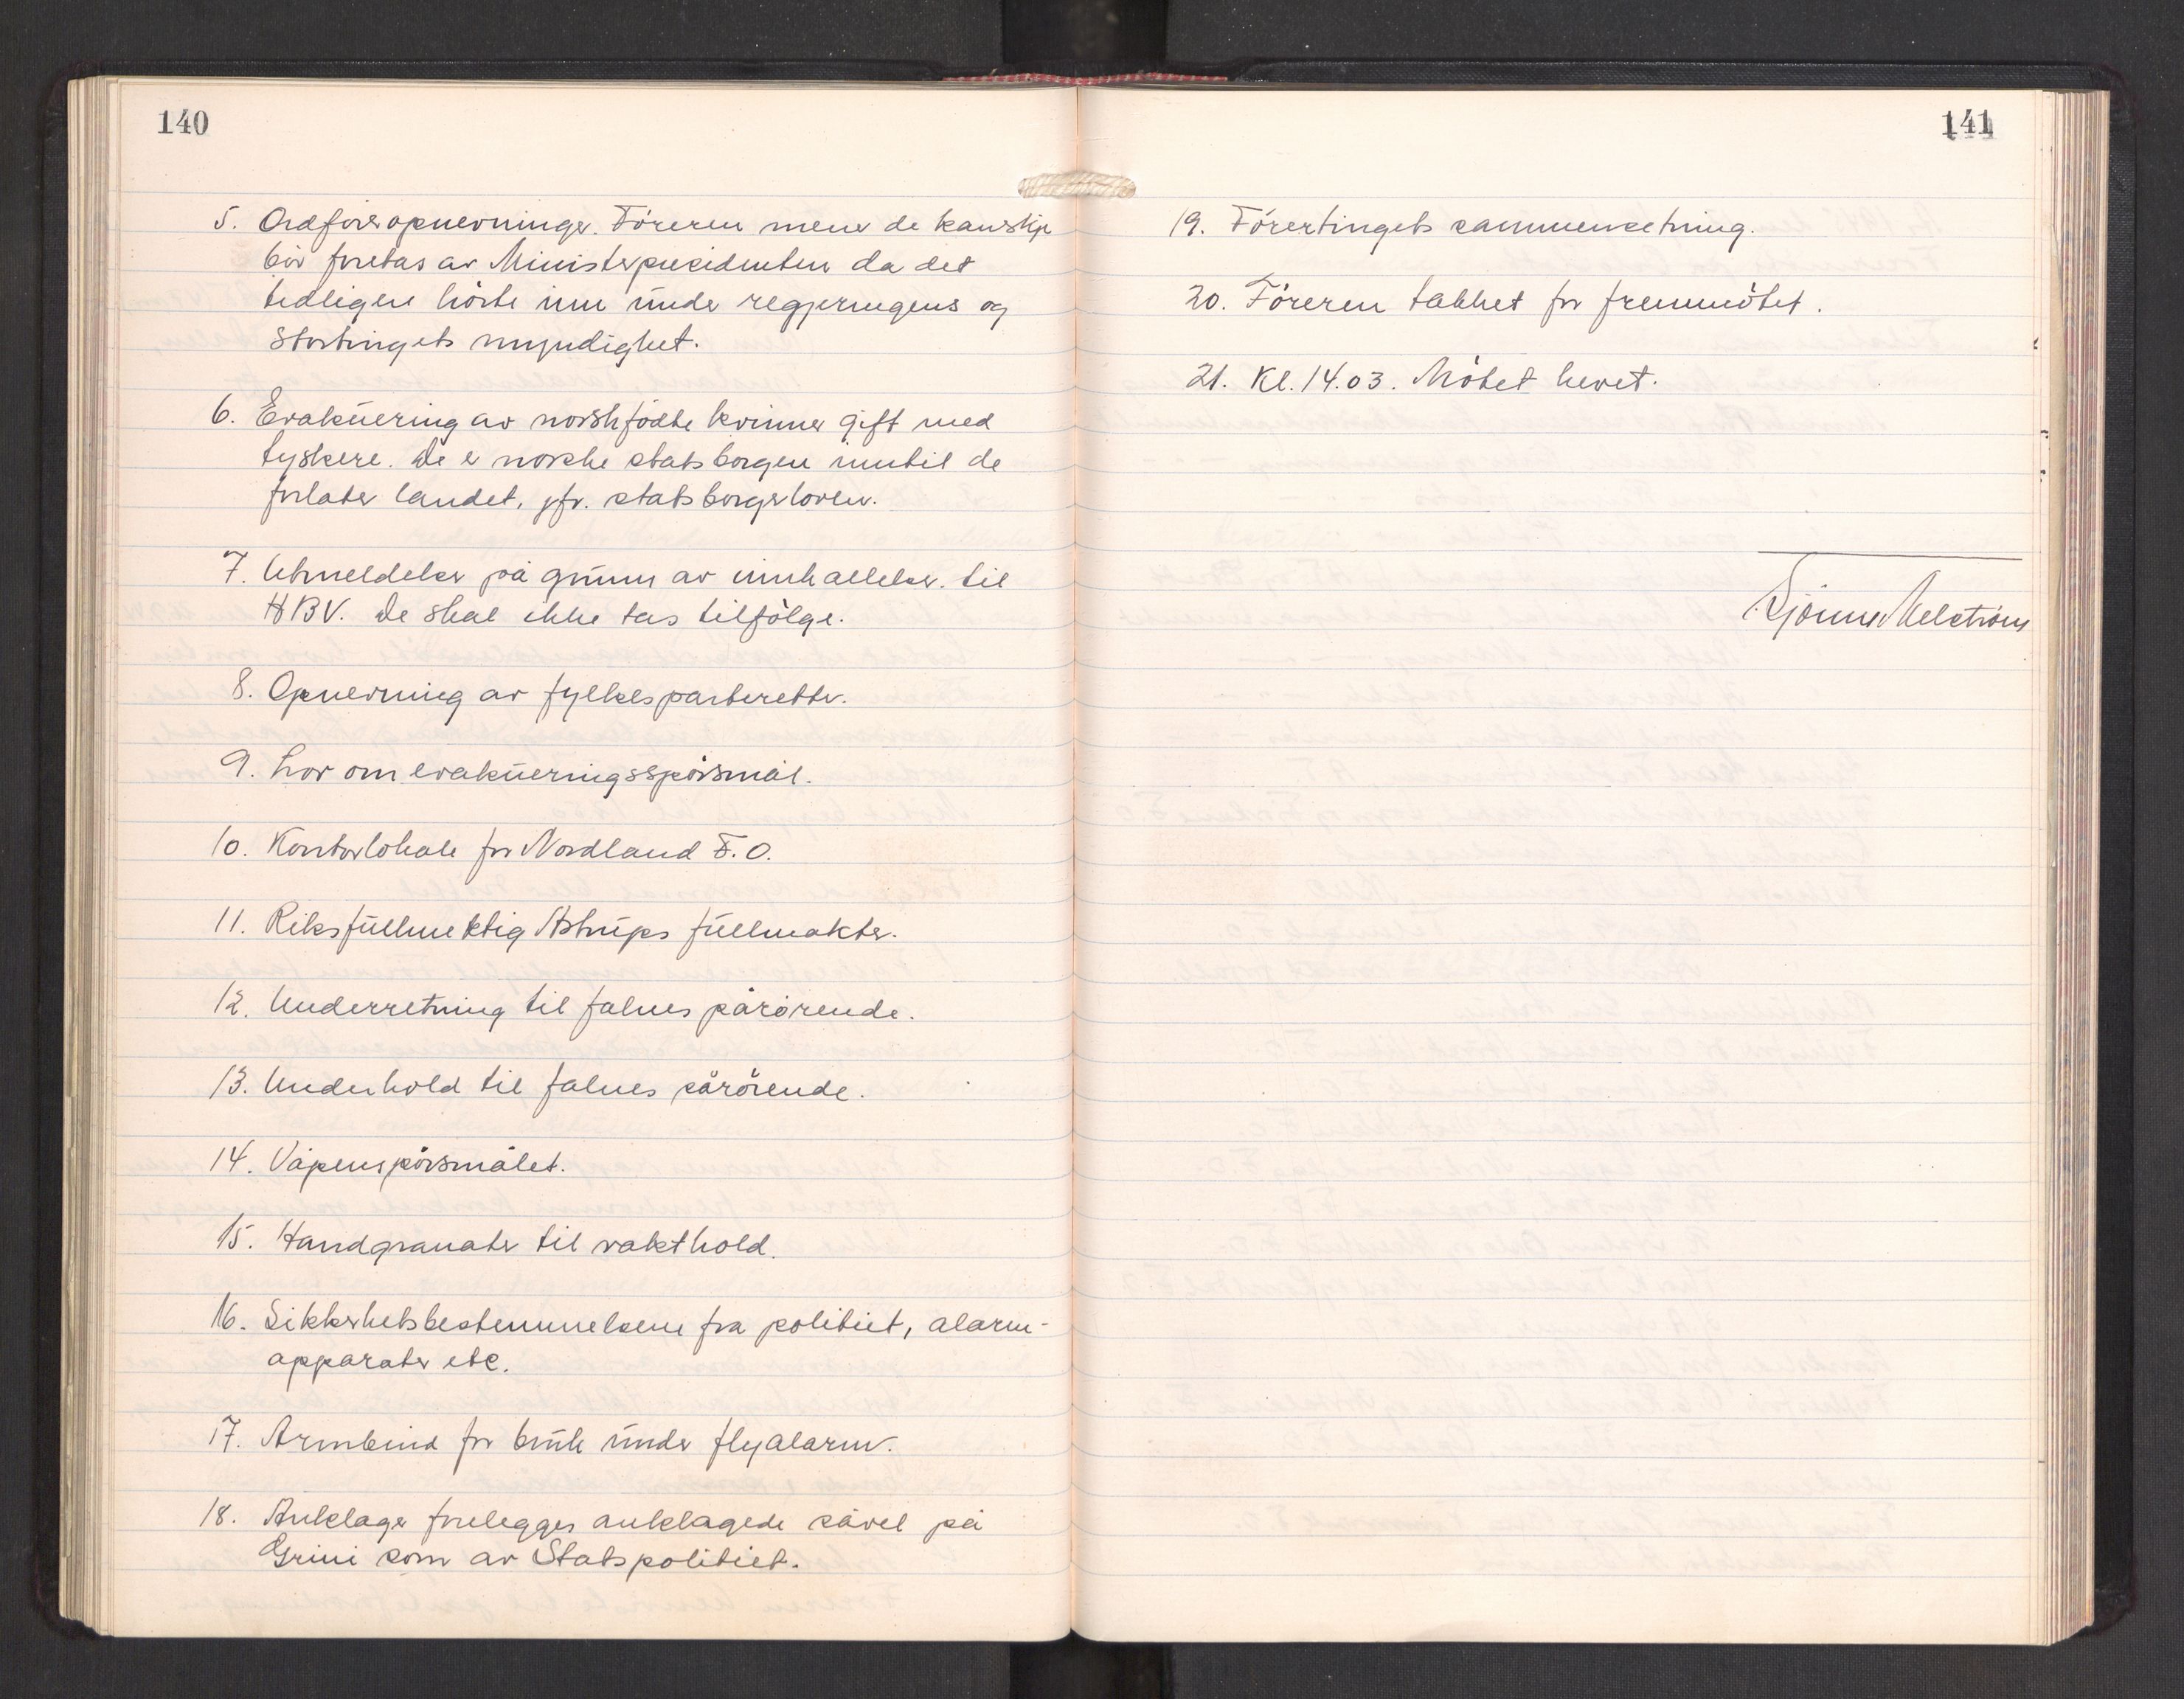 140
5. Ordføreropnevninger. Föreren mener de kanskje
bör foretas av Ministerpresidenten da det
tidligere hörte inn under regjeringens og
Stortingets myndighet.
6. Evakuering av norskfödte kvinner gift med
tyskere. De er norske statsborgere inntil de
forlater landet, jfr. statsborgerloven.
7. Utmeldelser på grunn av innkallelser til
HBV. De skal ikke tas tilfölge.
8. Opnevning av fylkespartiretter.
9. Lov om evakueringsspörsmål.
10. Kontorlokale for Nordland F.O.
11. Riksfullmektig Astrups fullmakter.
12. Underretning til falnes pårörende.
13. Underhold til falnes pårörende.
14. Våpenspörsmålet.
15. Handgranater til vakthold.
16. Sikkerhetsbestemmelsene fra politiet, alarm-
apparater etc.
17. Armbind for bruk under flyalarm.
18. Anklager forelegges anklagede såvel på
Grini som av Statspolitiet.
141
19. Förertingets sammensetning.
20. Föreren takket for fremmötet.
21. Kl. 14.03. Mötet hevet.